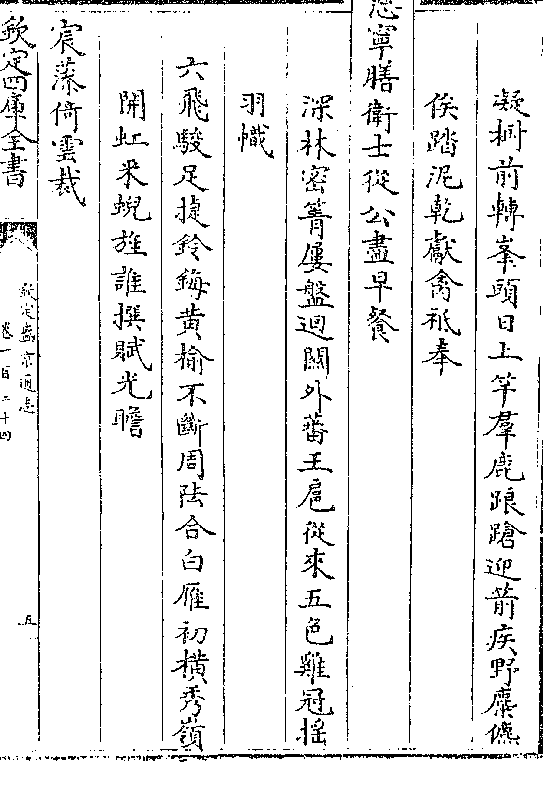 凝桐前轉峯頭日上竿羣鹿踉蹌迎箭疾野麋僬
俟踏泥乾獻禽祗奉
寧膳衛士從公盡早餐
深林密箐屢盤迴關外蕃王扈從來五色雞冠揺
羽幟
六飛駿足捷鈴鋂黄榆不斷周阹合白雁初横秀嶺
開虹采蜺旌誰撰賦光瞻
宸藻倚雲裁
欽定四庫全書
欽定盛京通志
卷一百二十四
五